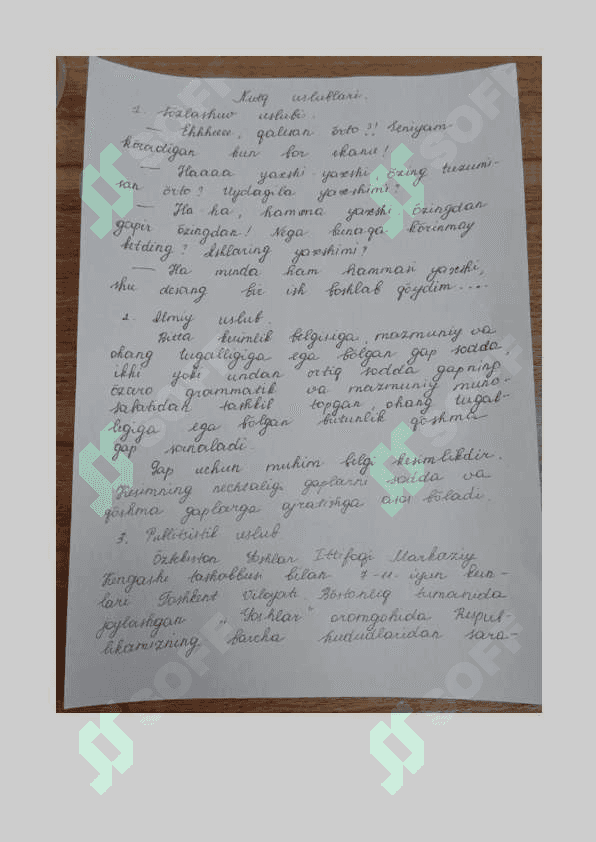 Nutq uslublari.
1. Sozlashuv uslubi.
— Ehhheee, qalesan örto?! Seniyam
köradigan kun bor ekanu!
— Haaaa yaxshi yaxshi, özing tuzumi-
san örto? Uydagila yaxshimi?
— Ha ha, hamma yaxshi özingdan
gapir özingdan! Nega bunaqa körinmay
ketding? Ishlaring yaxshimi?
— Ha minda ham hammasi yaxshi,
shu desang bir ish boshlab qöydim....
2. Ilmiy uslub.
Bitta kesimlik belgisiga, mazmuniy va
ohang tugalligiga ega bölgan gap sodda,
ikki yoki undan ortiq sodda gapning
özaro grammatik va mazmuniy muno-
sabatidan tashkil topgan, ohang tugal-
ligiga ega bölgan butunlik qöshma
gap sanaladi.
Gap uchun muhim belgi kesimlikdir.
Kesimning nechtaligi gaplarni sodda va
qöshma gaplarga ajratishga asos böladi.
3. Publitsistik uslub
Özbekiston Yoshlar Ittifoqi Markaziy
Kengashi tashabbusi bilan 7-11-iyun kun-
lari Toshkent Viloyati Böstonliq tumanida
joylashgan „Yoshlar" oromgohida Respub-
likamizning barcha hududlaridan sara-
SOFF
SOFF
SOFF
SOFF
SOFF
SOFF